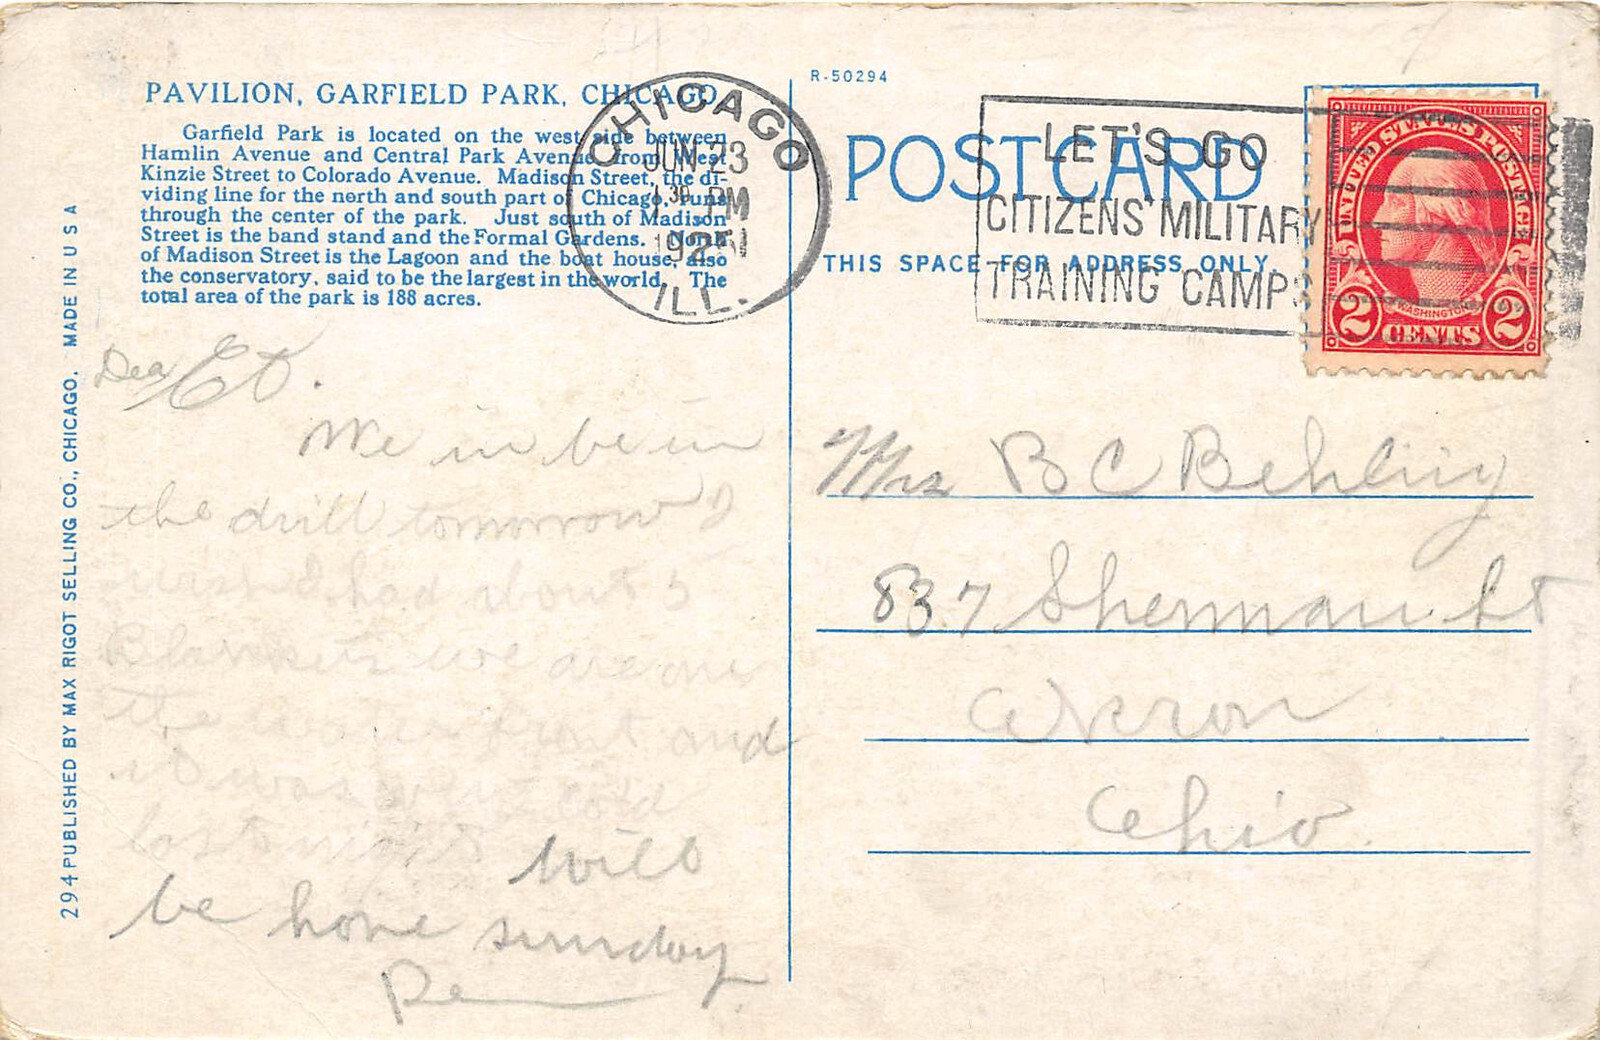 PAVILION, GARFIELD PARK, CHICAGO
Garfield Park is located on the west side between
Hamlin Avenue and Central Park Avenue from West
Kinzie Street to Colorado Avenue. Madison Street, the di-
viding line for the north and south part of Chicago, runs
through the center of the park. Just south of Madison
Street is the band stand and the Formal Gardens. North
of Madison Street is the Lagoon and the boat house, also
the conservatory, said to be the largest in the world. The
total area of the park is 188 acres.
294 PUBLISHED BY MAX RIGOT SELLING CO., CHICAGO. MADE IN U S A
CHICAGO
JUN 23
1 30 PM
192
ILL.
R-50294
POST CARD
THIS SPACE FOR ADDRESS ONLY
LET'S GO
CITIZENS' MILITARY
TRAINING CAMPS
UNITED STATES POSTAGE
WASHINGTON
2 CENTS 2
Dear Ed.
We in be in
the drill tomorrow
I had about 5
Blankets we are on
the water front and
it was very cold
last night will
be home sunday
Mrs B C Behling
837 Sherman St
Akron
Ohio